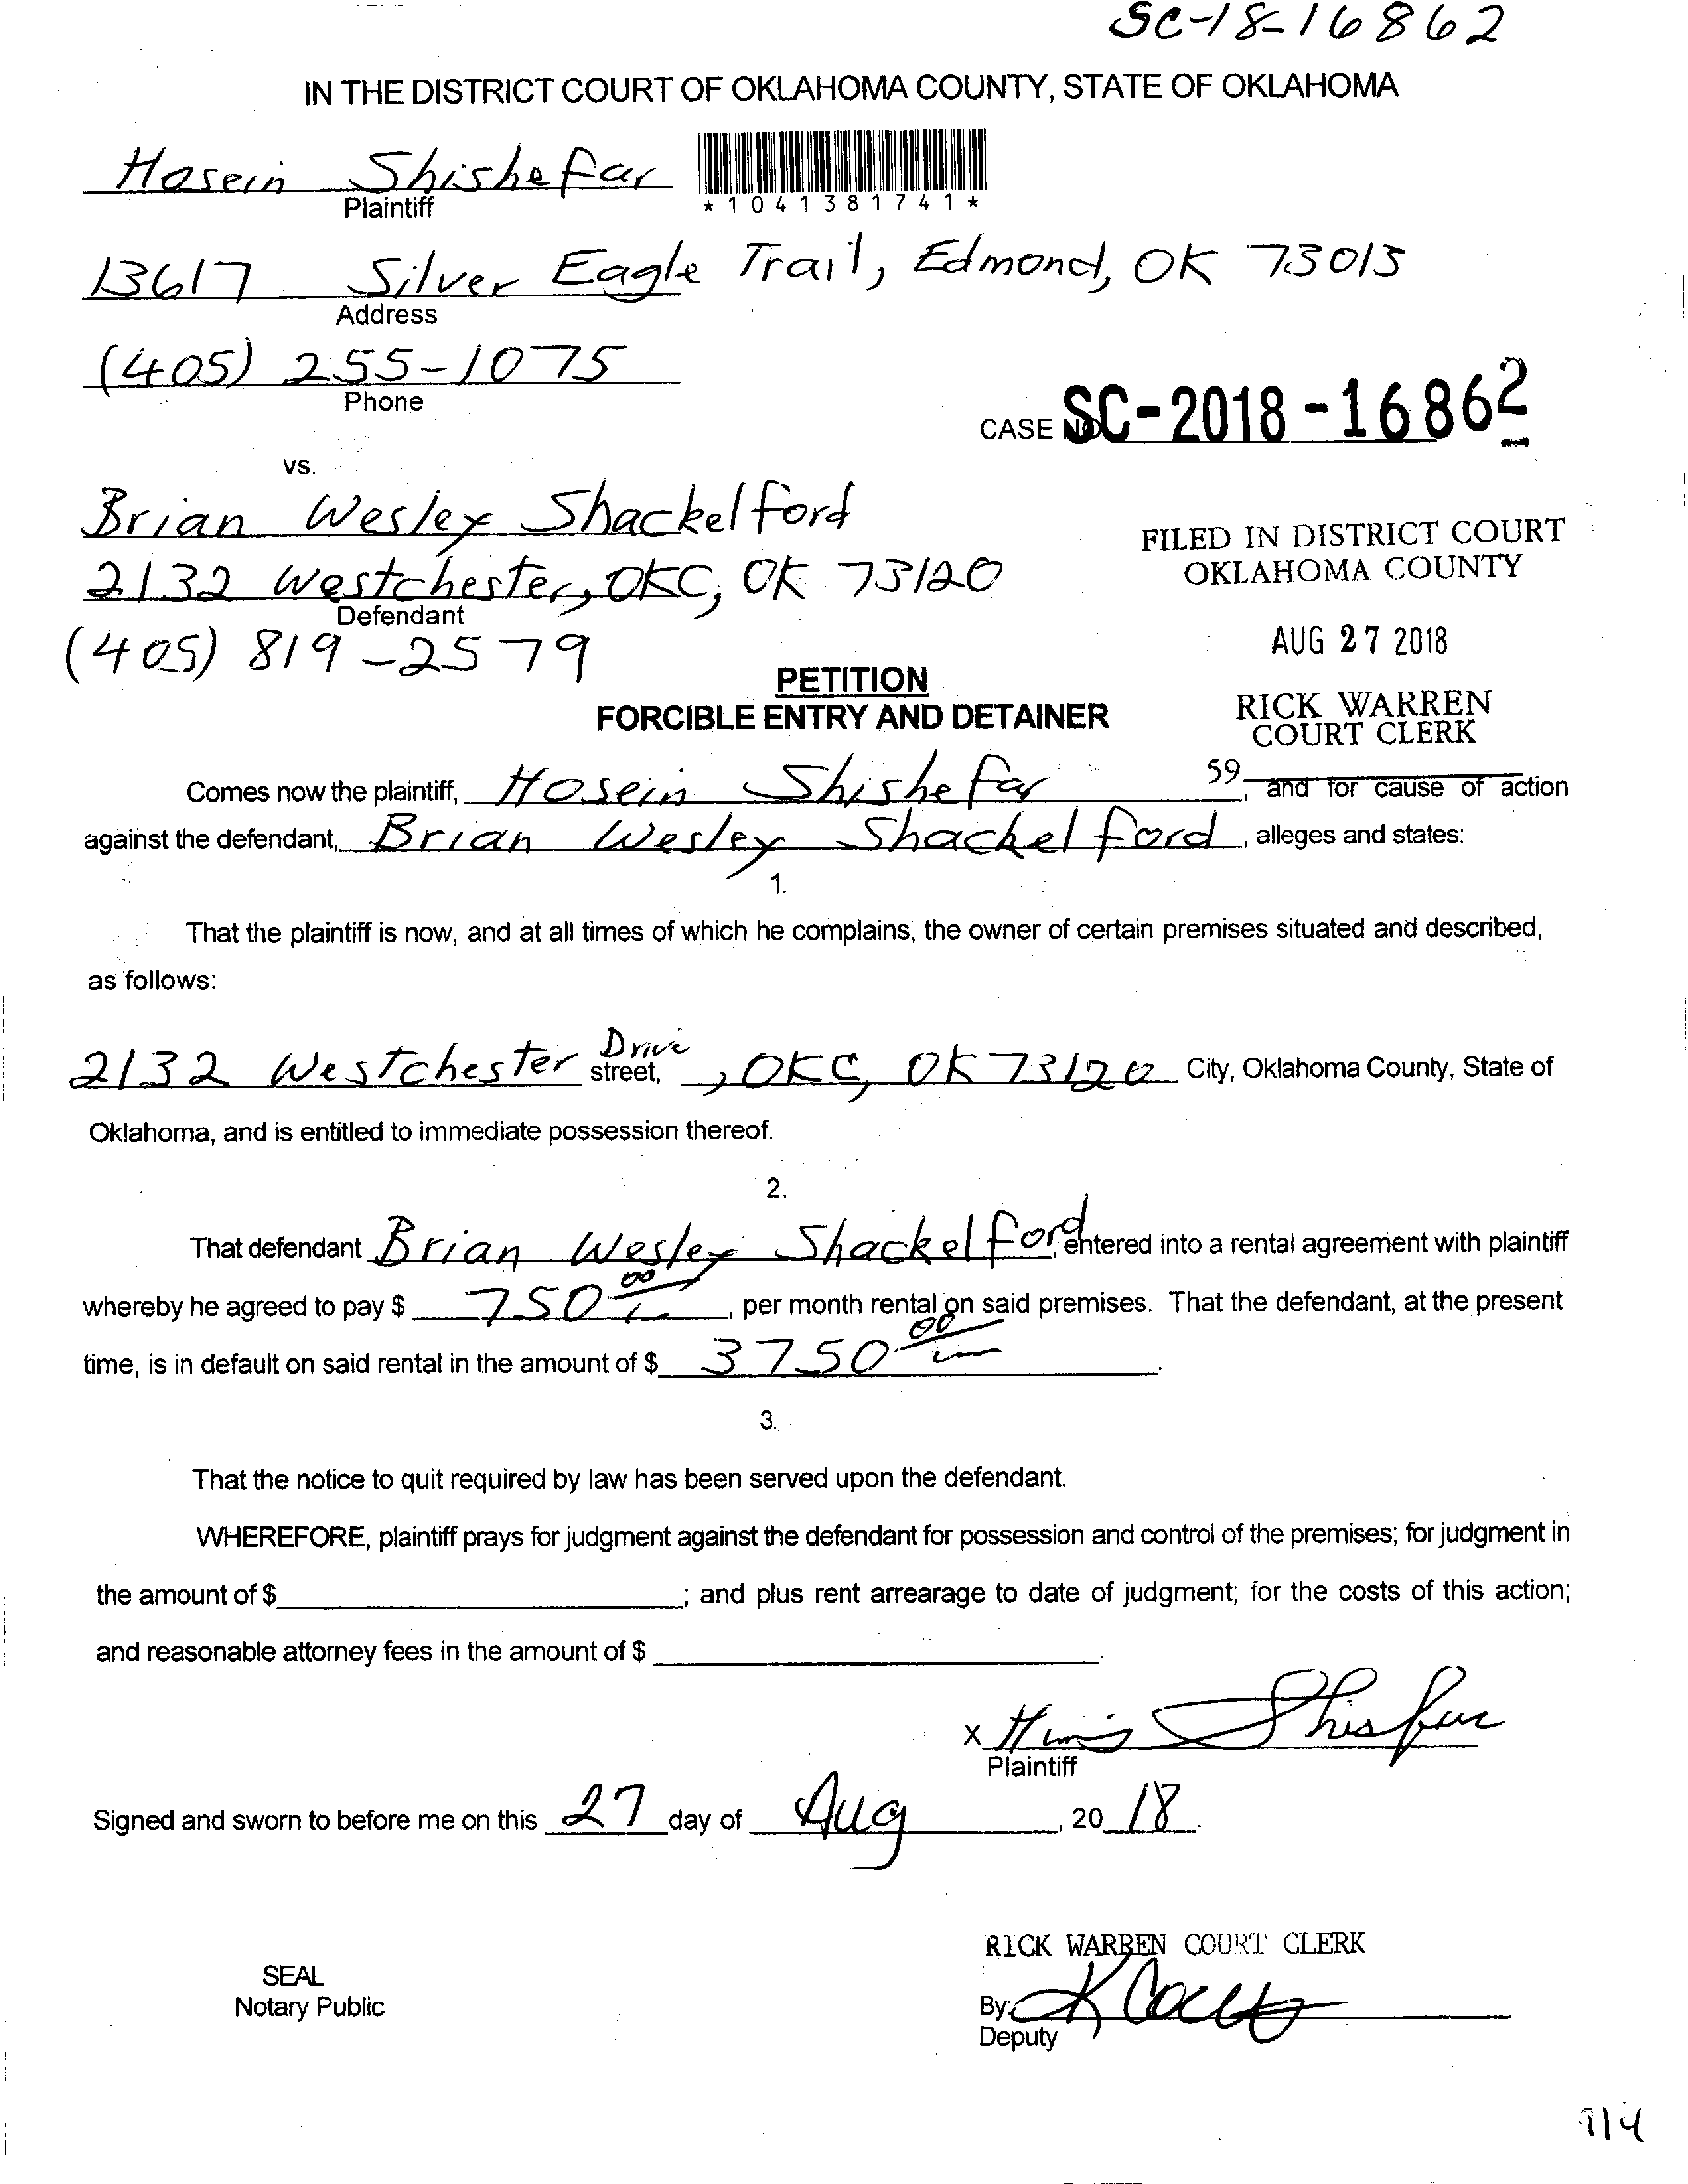 SC-18-16862
IN THE DISTRICT COURT OF OKLAHOMA COUNTY, STATE OF OKLAHOMA
Hosein Shishefar
Plaintiff
*1041381741*
13617 Silver Eagle Trail, Edmond, OK 73013
Address
(405) 255-1075
Phone
CASE NO SC-2018-16862
vs.
Brian Wesley Shackelford
2132 Westchester, OKC, OK 73120
Defendant
(405) 819-2579
FILED IN DISTRICT COURT
OKLAHOMA COUNTY
AUG 27 2018
RICK WARREN
COURT CLERK
59
PETITION
FORCIBLE ENTRY AND DETAINER
Comes now the plaintiff, Hosein Shishefar, and for cause of action
against the defendant, Brian Wesley Shackelford, alleges and states:
1.
That the plaintiff is now, and at all times of which he complains, the owner of certain premises situated and described,
as follows:
2132 Westchester Drive street, , OKC, OK 73120 City, Oklahoma County, State of
Oklahoma, and is entitled to immediate possession thereof.
2.
That defendant Brian Wesley Shackelford, entered into a rental agreement with plaintiff
whereby he agreed to pay $ 750 00, per month rental on said premises. That the defendant, at the present
time, is in default on said rental in the amount of $ 3750 00.
3.
That the notice to quit required by law has been served upon the defendant.
WHEREFORE, plaintiff prays for judgment against the defendant for possession and control of the premises; for judgment in
the amount of $ ; and plus rent arrearage to date of judgment; for the costs of this action;
and reasonable attorney fees in the amount of $ .
X
Plaintiff
Signed and sworn to before me on this 27 day of Aug, 20 18.
RICK WARREN COURT CLERK
SEAL
Notary Public
By:
Deputy
914